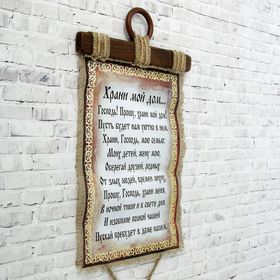 Храни мой дом...
Господь! Прошу, храни мой дом!
Пусть будет нам уютно в нем.
Храни, Господь, мою семью:
Моих детей, жену мою.
Оберегай друзей, родных
От злых людей, времён лихих.
Прошу, Господь, храни меня,
В ночной тиши и в свете дня.
И изобилие полной чашей
Пускай пребудет в доме нашем.